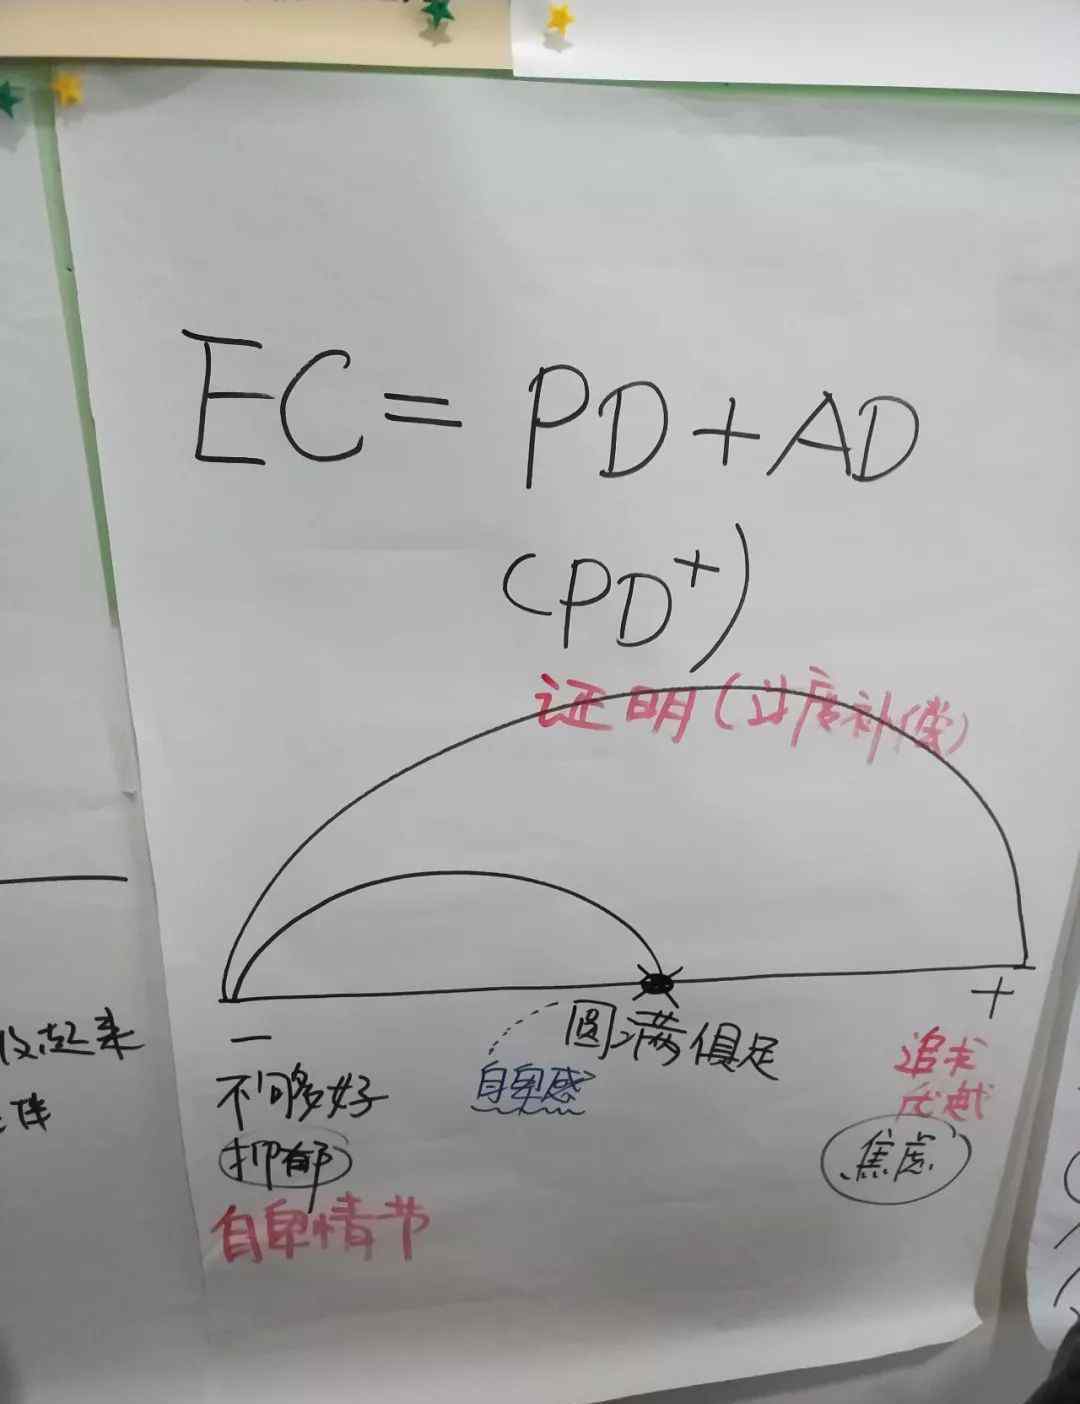 EC = PD + AD
(PD⁺)
证明(过度补偿)
— +
圆满俱足
自卑感
追求
优越
不间多好
抑郁
焦虑
自卑情节
起来